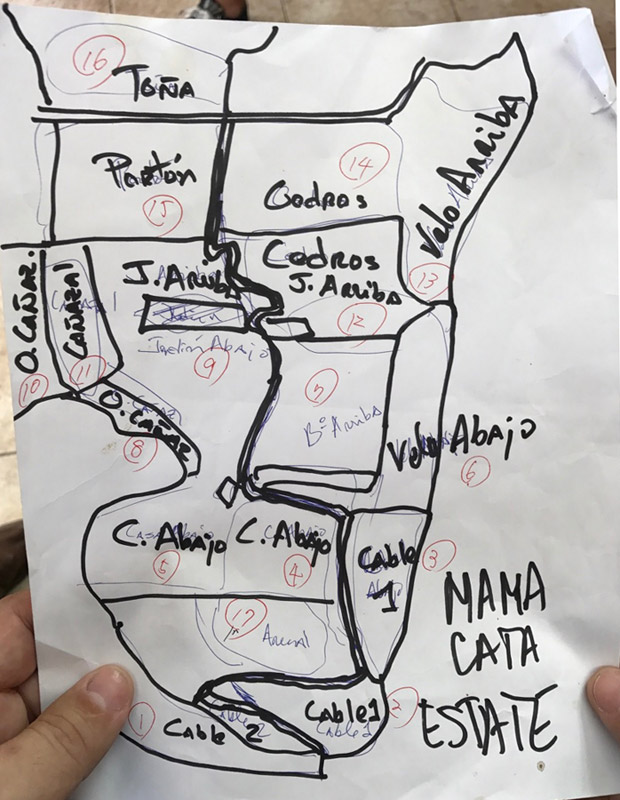 16
TOÑA
Portón
15
14
Cedros
Velo Arriba
13
Cedros
J. Arriba
12
J. Arriba
Jardin Abajo
9
O. CAÑAZ.
10
CAÑAZAL
11
O. CAÑAZ
8
7
Bº Arriba
Velo Abajo
6
C. Abajo
5
C. Abajo
4
Cable
1
3
17
Arenal
MAMA
CATA
ESTATE
Cable 1
Cable 1
2
1
Cable 2
Cable 2